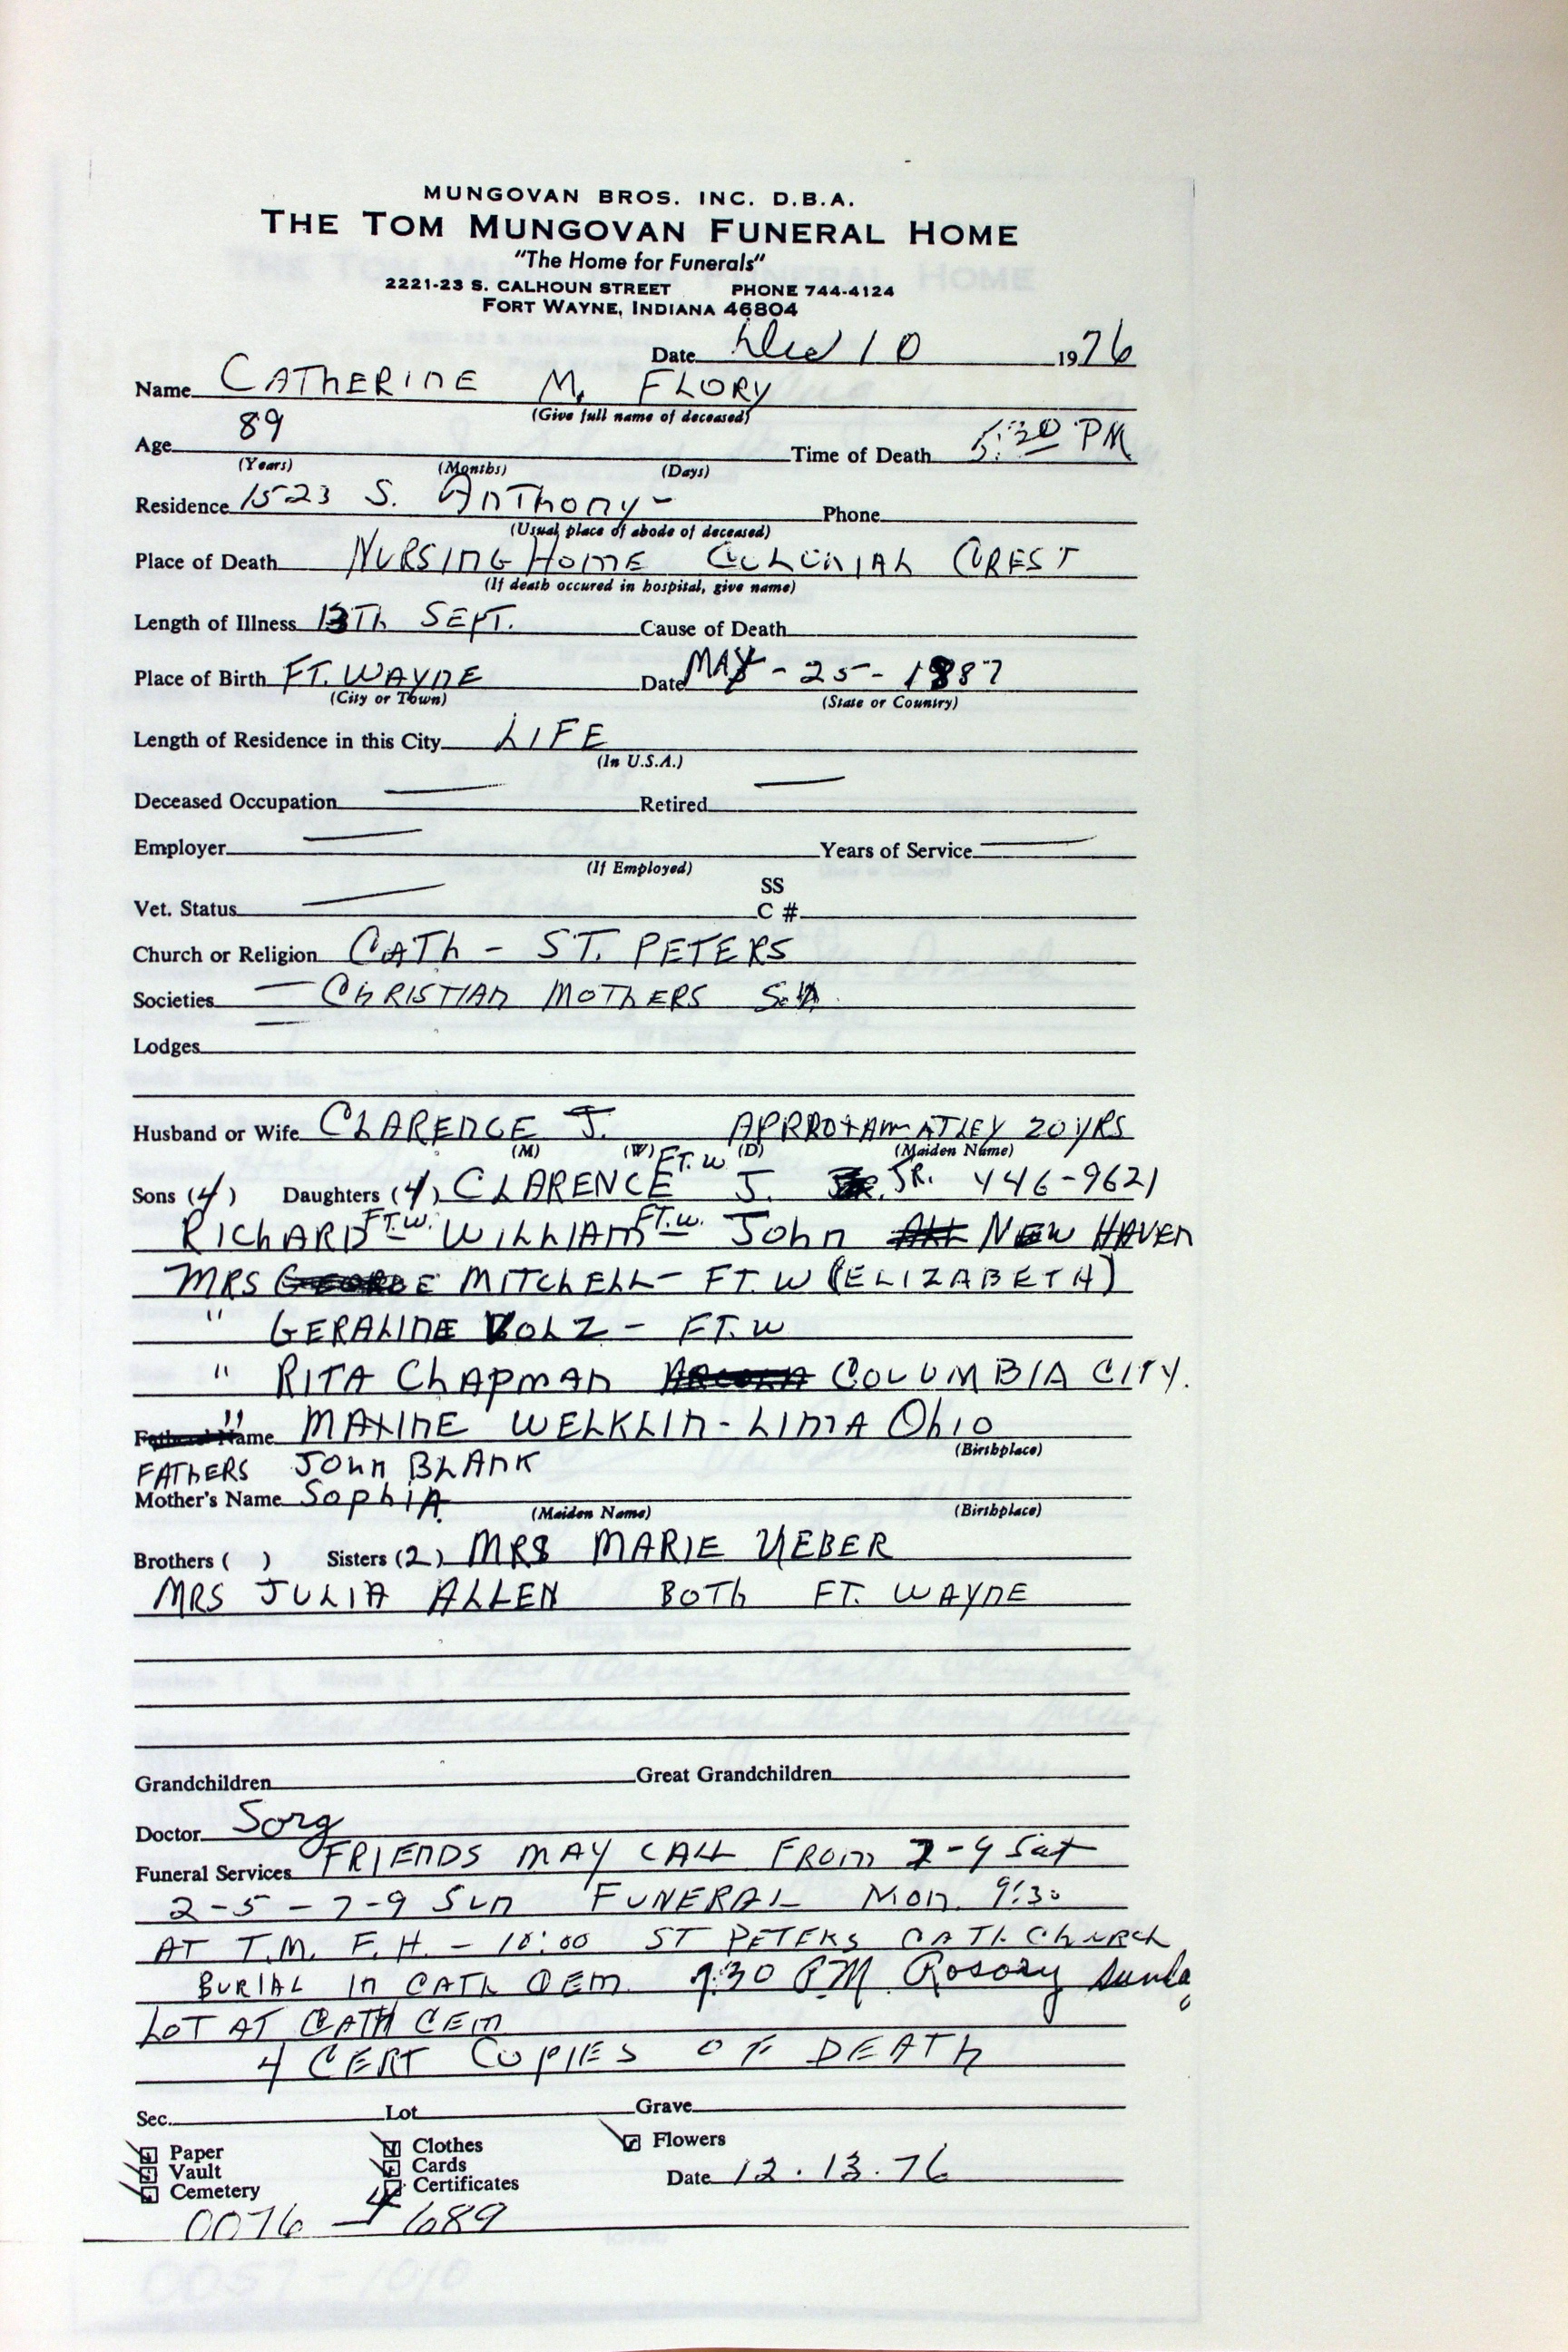 MUNGOVAN BROS. INC. D.B.A.
THE TOM MUNGOVAN FUNERAL HOME
"The Home for Funerals"
2221-23 S. CALHOUN STREET PHONE 744-4124
FORT WAYNE, INDIANA 46804
Date Dec 10 1976
Name CATHERINE M. FLORY
(Give full name of deceased)
Age 89 Time of Death 5:30 PM
(Years) (Months) (Days)
Residence 1523 S. AnThony - Phone
(Usual place of abode of deceased)
Place of Death NURSING HOME COLONIAL CREST
(If death occured in hospital, give name)
Length of Illness 13Th SEPT. Cause of Death
Place of Birth FT. WAYNE Date MAY - 25 - 1887
(City or Town) (State or Country)
Length of Residence in this City LIFE
(In U.S.A.)
Deceased Occupation — Retired —
Employer — Years of Service —
(If Employed)
SS
Vet. Status — C #
Church or Religion CATh - ST. PETERS
Societies — ChRISTIAN MOThERS
Lodges —
Husband or Wife CLARENCE J. APRROXAMATLEY 20 YRS
(M) (W) (D) (Maiden Name)
Sons (4) Daughters (4) CLARENCE FT. W J. JR. 446-9621
RIChARD FT.W. WILLIAM FT.W. John NEW HAVEN
MRS GEORGE MITChELL - FT. W (ELIZABETH)
" GERALINE VOLZ - FT. W
" RITA ChAPMAN ARCOLA COLUMBIA CITY.
Fathers Name " MAXINE WELKLIN - LIMA Ohio
(Birthplace)
FAThERS JOhN BLANK
Mother's Name SophiA
(Maiden Name) (Birthplace)
Brothers ( ) Sisters (2) MRS MARIE UEBER
MRS JULIA ALLEN BOTh FT. WAYNE
Grandchildren Great Grandchildren
Doctor Sorg
Funeral Services FRIENDS MAY CALL FROM 7-9 Sat
2-5 - 7-9 SUN FUNERAL MON. 9:30
AT T.M. F.H. - 10:00 ST PETERS CATh ChURCh
BURIAL IN CATh CEM. 7:30 PM Rosary Sunda
LOT AT CATH CEM
4 CERT COPIES OF DEATh
Sec. Lot Grave
Paper Clothes Flowers
Vault Cards
Cemetery Certificates Date 12.13.76
4
0076 - 1689